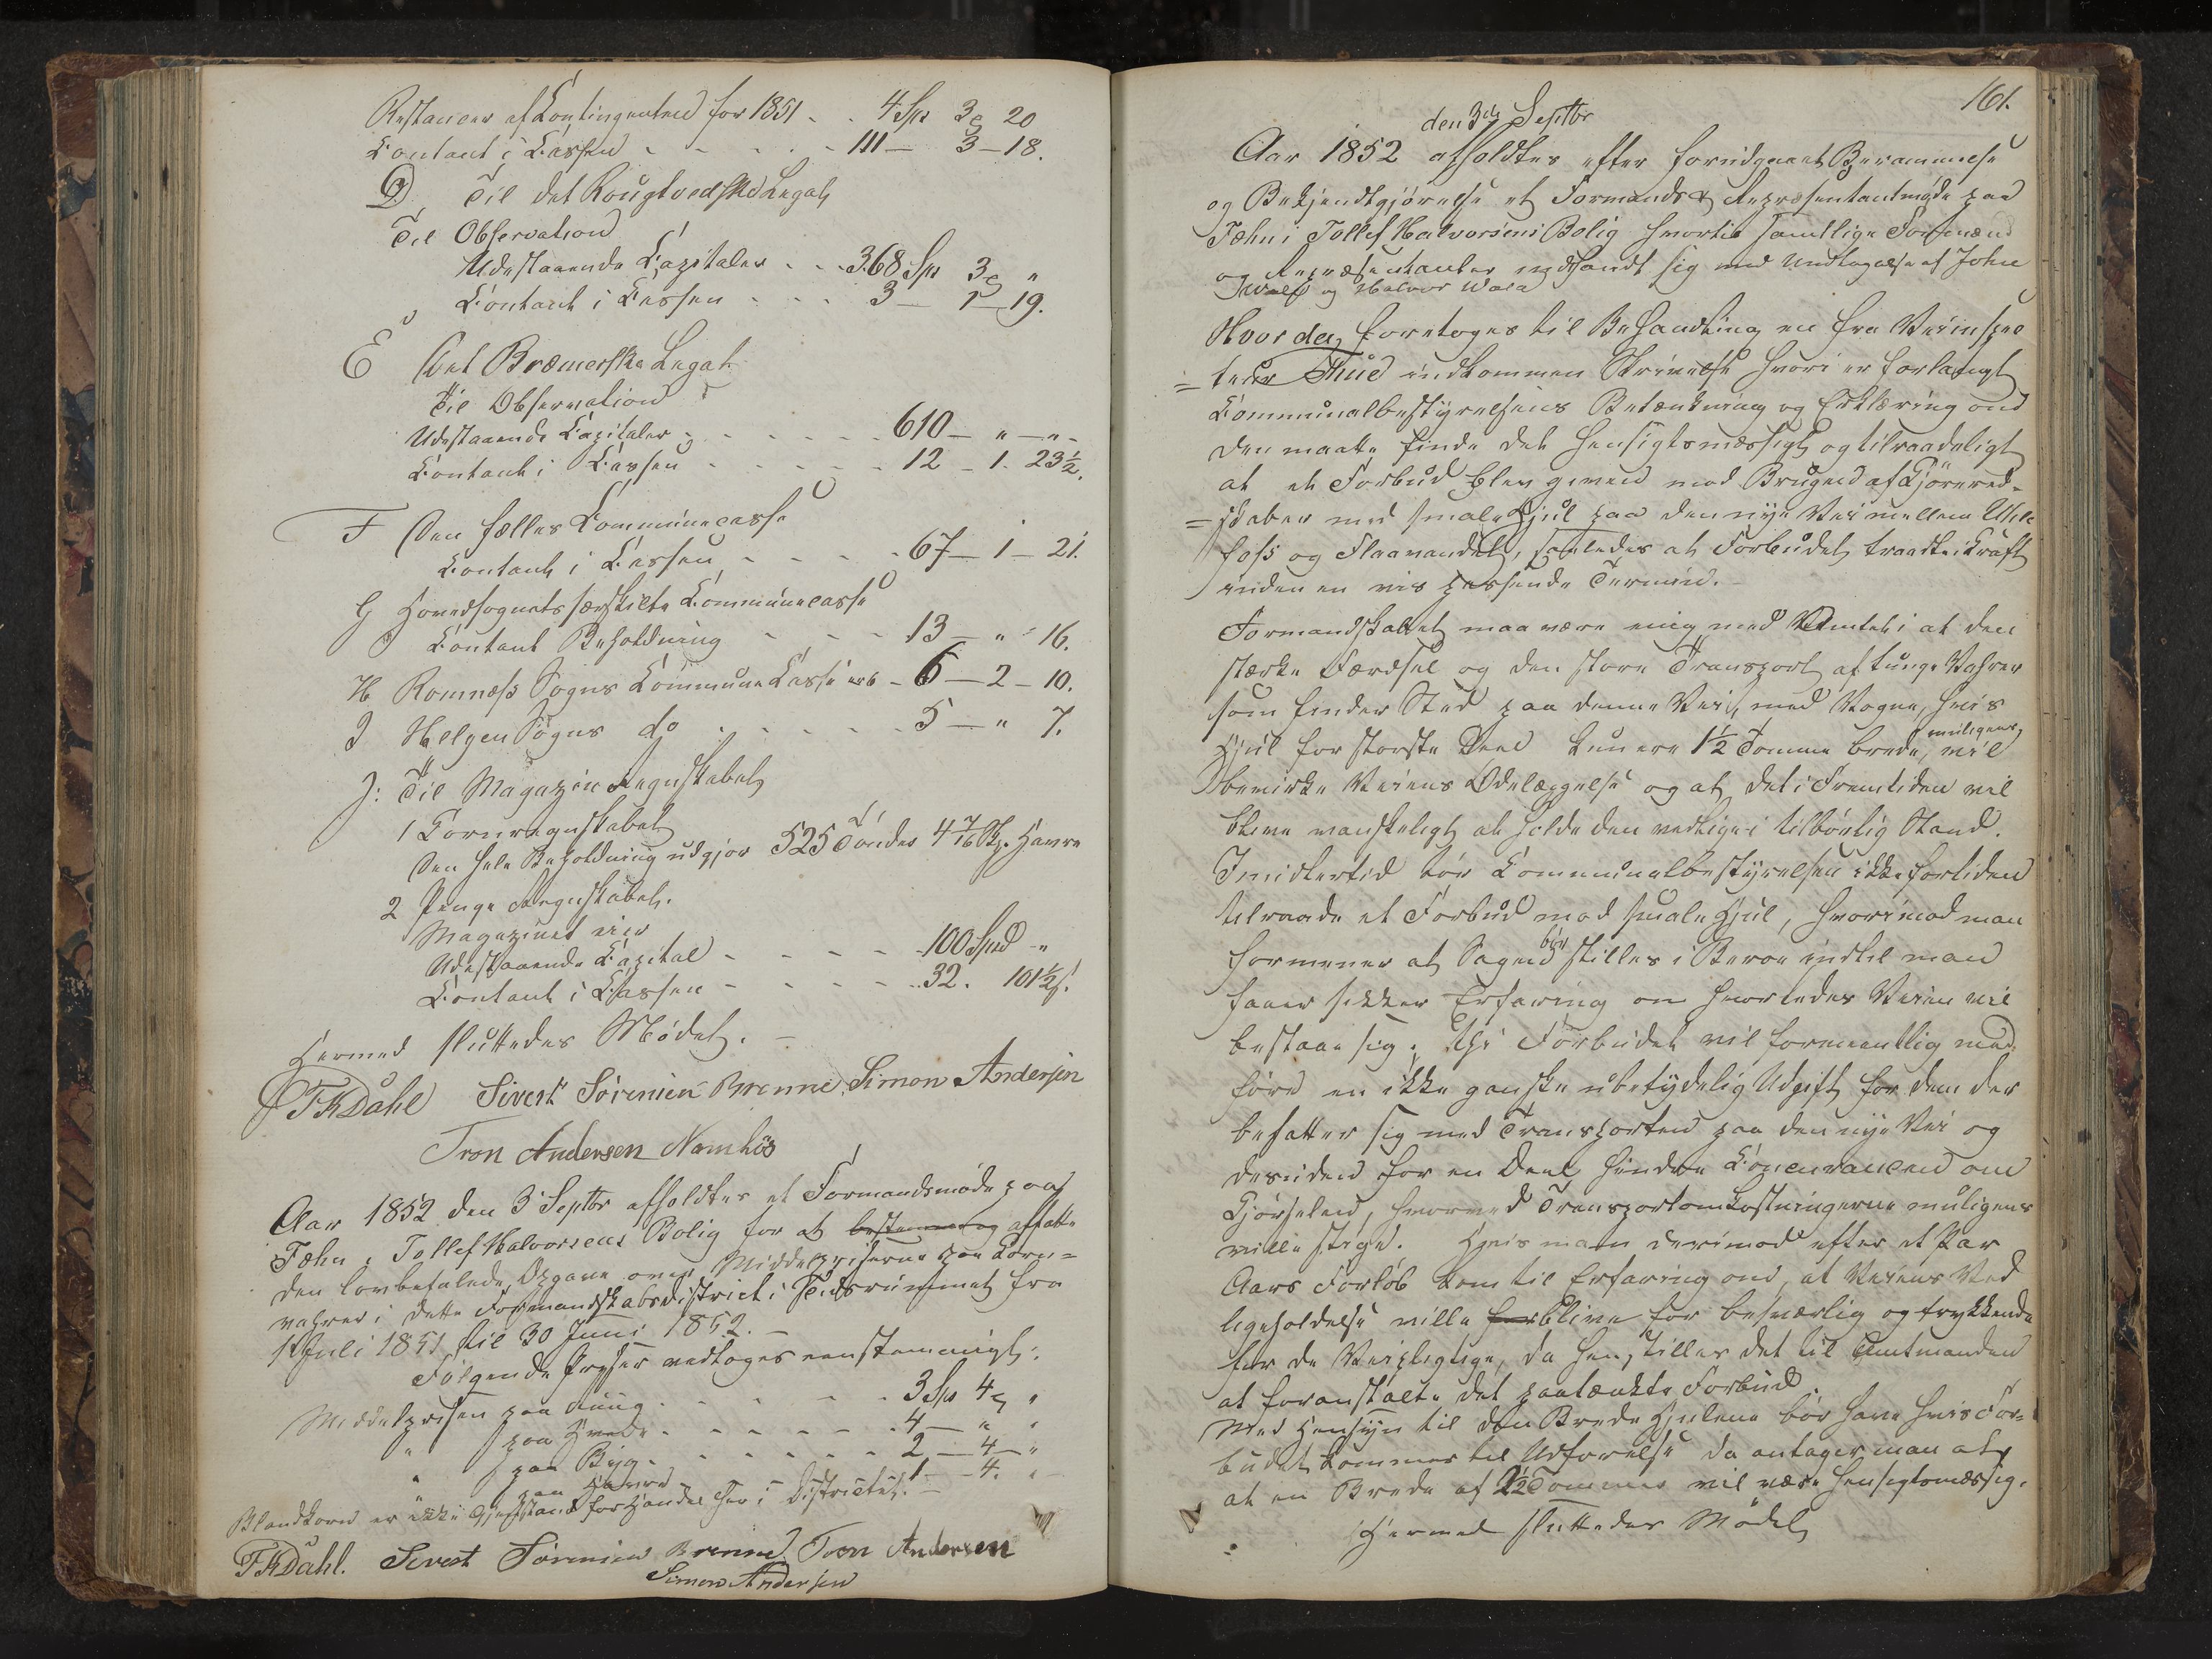 Restancer af Contingenten for 1851 . . 4 Spr 3 ₰ 20
Contant i Cassen - - - - - 111 — 3 — 18.
D, Til det Rougtvedske Legat
Til Observation
Udestaaende Capitaler . . . 368 Spr 3 ₰ "
Contant i Cassen - - - 3 — 1 — 19.
E Det Bræmerske Legat
Til Observation
Udestaaende Capitaler - - - - - 610 — " — " -
Contant i Cassen - - - - - 12 - 1. 23½.
F Den fælles Communecasse
Contant i Cassen - - - - 67 — 1 — 21.
G Hovedsognets særskilte Communecasse
Contant Beholdning - - - 13 — " - 16.
H Romnæss Sogns Commune Casse - 6 — 2 — 10.
I Helgen Sogns do - - - - - 5 — " 7.
J: Til Magazin Regnskabet
1 Cornregnskabet
Den hele Beholdning udgjør 525 Tønder 4 7/16 Skp. Havre
2 Penge Regnskabet.
Magazinet eier
Udestaaende Capital - - - - 100 Spd "
Contant i Cassen - - - - - 32. 101½ s.
Hermed sluttedes Mødet. -
F K Dahl Sivert Sörensen Brenne Simon Andersen
Tron Andersen Namløs
Aar 1852 den 3 Septbr afholdtes et Formandsmøde paa
Fæhn i Tollef Halvorsens Bolig for at bestemme og affatte
den lovbefalede Opgave over Middelpriserne paa Korn=
vahrer i dette Formandskabsdistrict i Tidsrummet fra
1 Juli 1851 til 30 Juni 1852. -
Følgende Priser vedtoges eenstemmigt:
Middelprisen paa Rug - - - - - 3 Spr 4 ₰ "
" paa Hvede - - - - - 4 — " "
" paa Byg - - - - - - 2 — 4 — "
" paa Havre - - - - 1 — 4. "
Blandkorn er ikke Gjenstand for Handel her i Districtet. -
F K Dahl. Sivert Sörensen Brenne Tron Andersen
Simon Andersen
161.
den 3die Septbr
Aar 1852 afholdtes efter forudgaaet Berammelse
og Bekjendtgjørelse et Formands & Repræsentantmøde paa
Fæhn i Tollef Halvorsens Bolig hvortil samtlige Formænd
og Repræsentanter indfandt sig med Undtagelse af John
og Halvor Vala
Hvor da, foretoges til Behandling en fra Veiinspec
= teur Thue indkommen Skrivelse hvori er forlangt
Communalbestyrelsens Betænkning og Erklæring om
den maatte finde det hensigtsmæssigt og tilraadeligt
at et Forbud blev given mod Brugen af Kjørered=
= skaber med smale Hjul paa den nye Vei mellem Ule
foss og Flaavandet, saaledes at Forbudet traadte i Kraft
inden en vis passende Termin. -
Formandskabet maa være enig med Amtet i at den
stærke Færdsel og den store Transport af tunge Vahrer
som finder Sted paa denne Vei, med Vogne, hvis
Hjul for største Deel kun ere 1½ Tomme brede, muligens vil
bevirke Veiens Ødelæggelse og at det i Fremtiden vil
blive vanskeligt at holde den vedlige i tilbørlig Stand.
Imidlertid tør Communalbestyrelsen ikke fortiden
tilraade et Forbud mod smale Hjul, hvorimod man
formener at Sagen bør stilles i Beroe indtil man
faaer sikker Erfaring om hvorledes Veien vil
bestaae sig; thi Forbudet vil formeentlig med
føre en ikke ganske ubetydelig Udgift for dem der
befatter sig med Transporten paa den nye Vei og
desuden for en Deel hindre Concurancen om
Kjørselen, hvorved Transportomkostningerne muligens
ville stige. Hvis man derimod efter et Par
Aars Forløb kom til Erfaring om, at Veiens Ved
ligeholdelse ville for blive for besværlig og trykkende
for de Veipligtige, da henstilles det til Amtmanden
at foranstalte det paatænkte Forbud.
Med Hensyn til den Brede Hjulene bør have hvis For=
budet kommer til Udførelse da antager man at
at en Brede af 2½ Tommer vil være hensigtsmæssig.
Hermed sluttedes Mødet